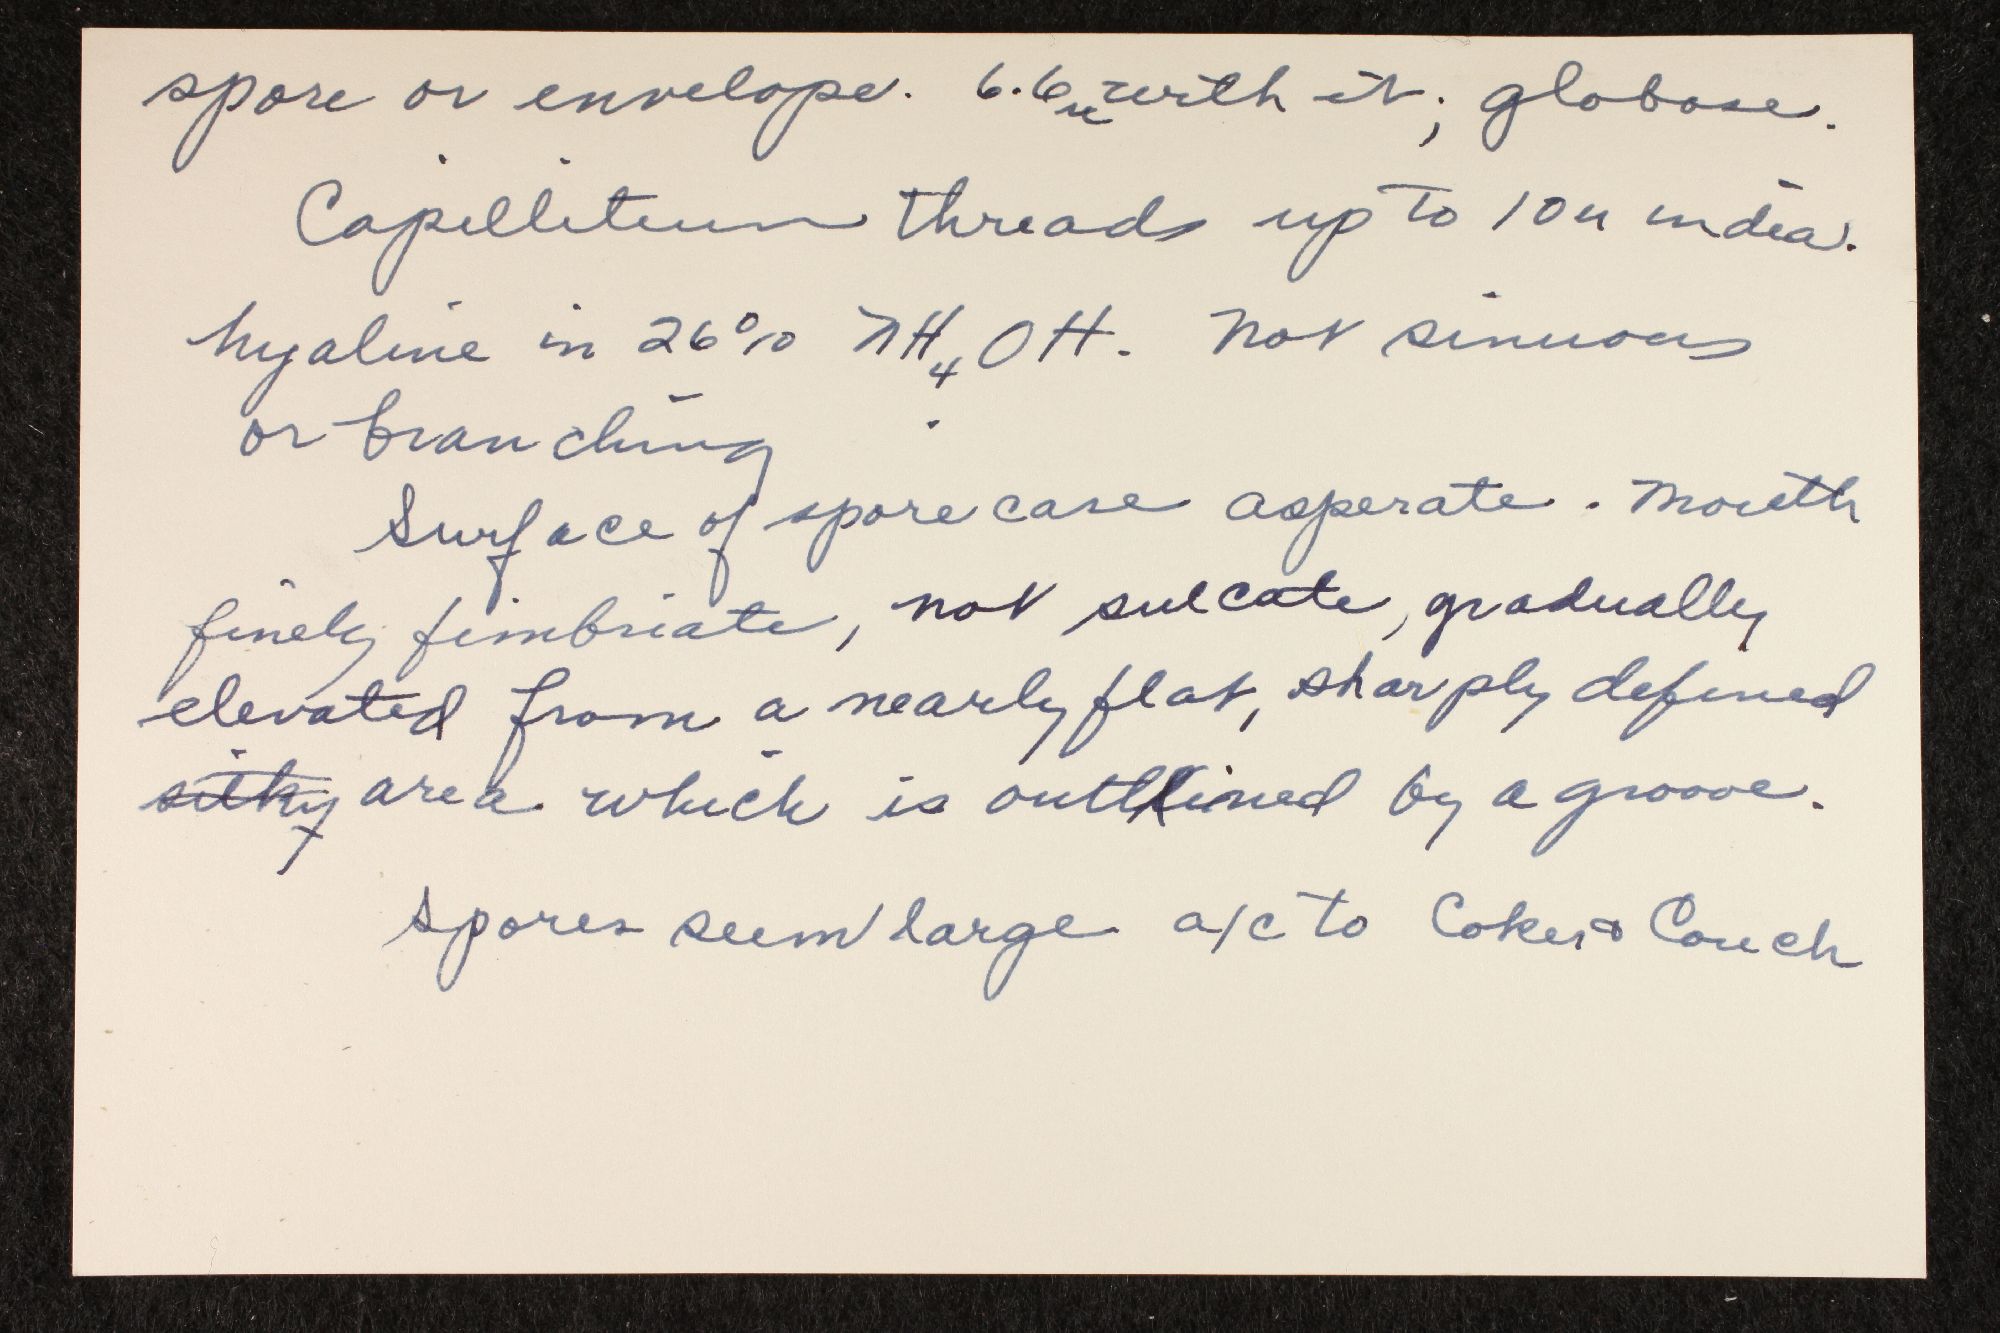 spore or envelope. 6.6u with it; globose.
Capillitium threads up to 10u in dia.
hyaline in 26% NH4OH. Not sinuous
or branching.
Surface of spore case asperate. Mouth
finely fimbriate, not sulcate, gradually
elevated from a nearly flat, sharply defined
silky area which is outlined by a groove.
Spores seem large a/c to Coker & Couch